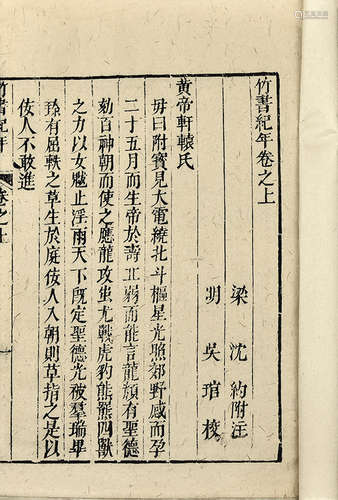 竹書紀年卷之上
梁 沈約附注
明 吳琯校
黃帝軒轅氏
母曰附寶見大電繞北斗樞星光照郊野感而孕
二十五月而生帝於壽丘弱而能言龍顏有聖德
劾百神朝而使之應龍攻蚩尤戰虎豹熊羆四獸
之力以女魃止淫雨天下既定聖德光被羣瑞畢
臻有屈軼之草生於庭佞人入朝則草指之是以
佞人不敢進
竹書紀年 卷之上